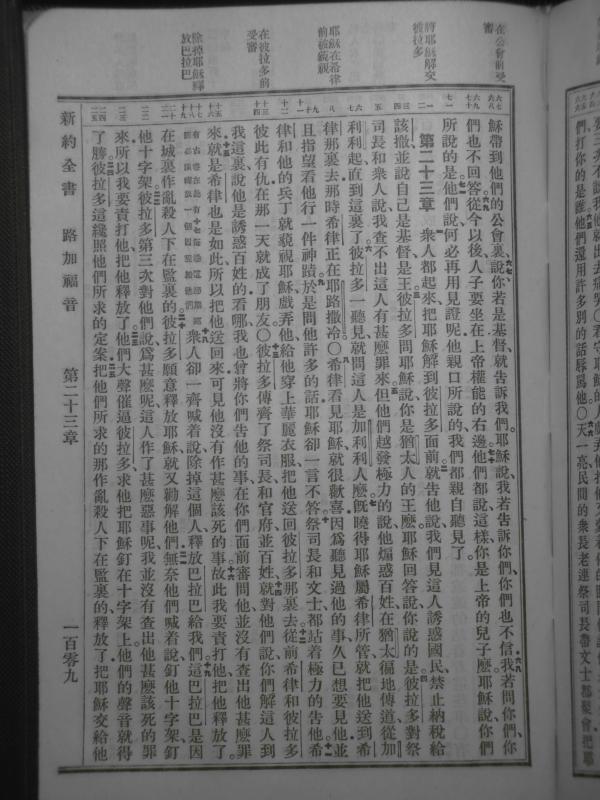 在公會前受審
將耶穌解交彼拉多
耶穌在希律前被藐視
在彼拉多前受審
除掉耶穌釋放巴拉巴
穌帶到他們的公會裏說你若是基督就告訴我們耶穌說我若告訴你們你們也不信我若問你們你
們也不回答從今以後人子要坐在上帝權能的右邊他們都說這樣你是上帝的兒子麼耶穌說你們
所說的是他們說何必再用見證呢他親口所說的我們都親自聽見了
第二十三章 衆人都起來把耶穌解到彼拉多面前就告他說我們見這人誘惑國民禁止納稅給
該撒並說自己是基督是王彼拉多問耶穌說你是猶太人的王麼耶穌回答說你說的是彼拉多對祭
司長和衆人說我查不出這人有甚麼罪來但他們越發極力的說他煽惑百姓在猶太徧地傳道從加
利利起直到這裏了彼拉多一聽見就問這人是加利利人麼旣曉得耶穌屬希律所管就把他送到希
律那裏去那時希律正在耶路撒冷〇希律看見耶穌就很歡喜因爲聽見過他的事久已想要見他並
且指望看他行一件神蹟於是問他許多的話耶穌卻一言不答祭司長和文士都站着極力的告他希
律和他的兵丁就藐視耶穌戲弄他給他穿上華麗衣服把他送回彼拉多那裏去從前希律和彼拉多
彼此有仇在那一天就成了朋友〇彼拉多傳齊了祭司長和官府並百姓就對他們說你們解這人到
我這裏說他是誘惑百姓的看哪我也曾將你們告他的事在你們面前審問他並沒有查出他甚麼罪
來就是希律也是如此所以把他送回來可見他沒有作甚麼該死的事故此我要責打他把他釋放了
衆人卻一齊喊着說除掉這個人釋放巴拉巴給我們這巴拉巴是因
在城裏作亂殺人下在監裏的彼拉多願意釋放耶穌就又勸解他們無奈他們喊着說釘他十字架釘
他十字架彼拉多第三次對他們說爲甚麼呢這人作了甚麼惡事呢我並沒有查出他甚麼該死的罪
來所以我要責打他把他釋放了他們大聲催逼彼拉多求他把耶穌釘在十字架上他們的聲音就得
了勝彼拉多這纔照他們所求的定案把他們所求的那作亂殺人下在監裏的釋放了把耶穌交給他
新約全書 路加福音 第二十三章 一百零九